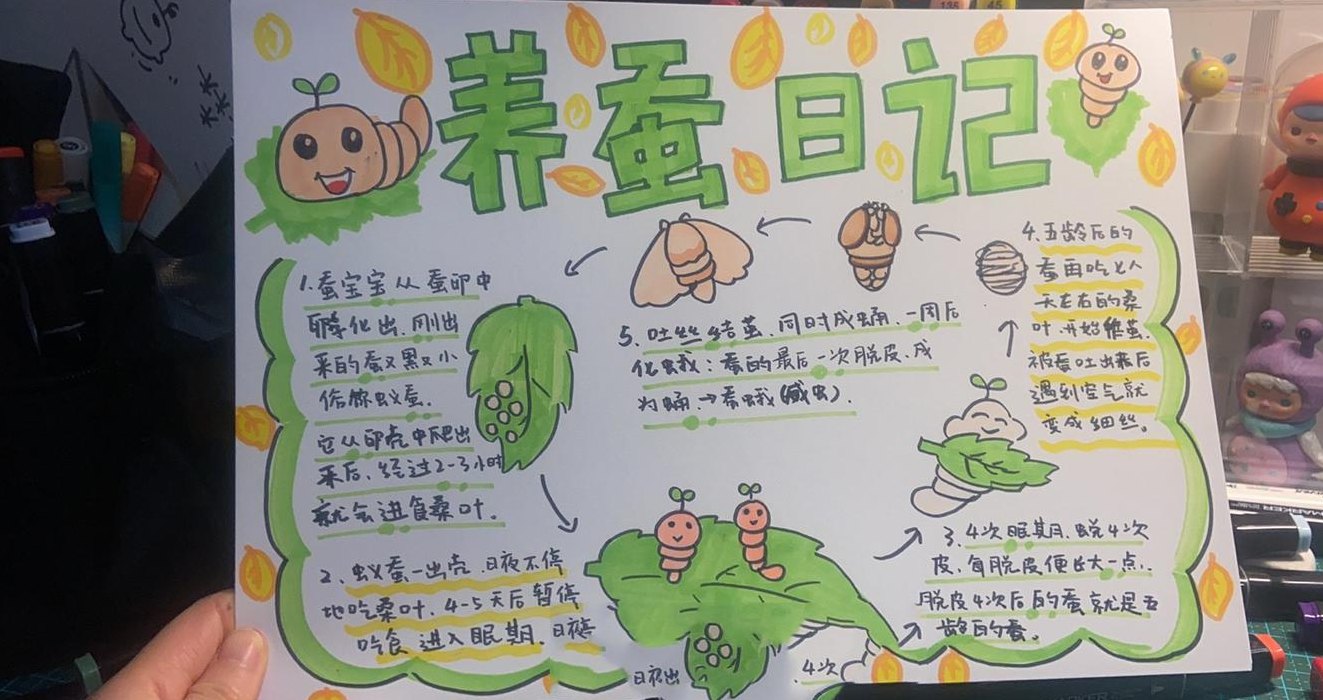 养蚕日记
1.蚕宝宝从蚕卵中
孵化出,刚出
来的蚕又黑又小
俗称蚁蚕.
它从卵壳中爬出
来后,经过2-3小时
就会进食桑叶.
2、蚁蚕一出壳,日夜不停
地吃桑叶,4-5天后暂停
吃食,进入眠期.
3.4次眠期,蜕4次
皮,每脱皮便长大一点,
脱皮4次后的蚕就是五
龄的蚕。
4.五龄后的
蚕再吃
天左右的桑
叶,开始
被蚕吐出来后
遇到空气就
变成细丝。
5.吐丝结茧,同时成蛹,一周后
化蛾:蚕的最后一次脱皮,成
为蛹→蚕蛾(成虫).
4次
135
45
MARKER